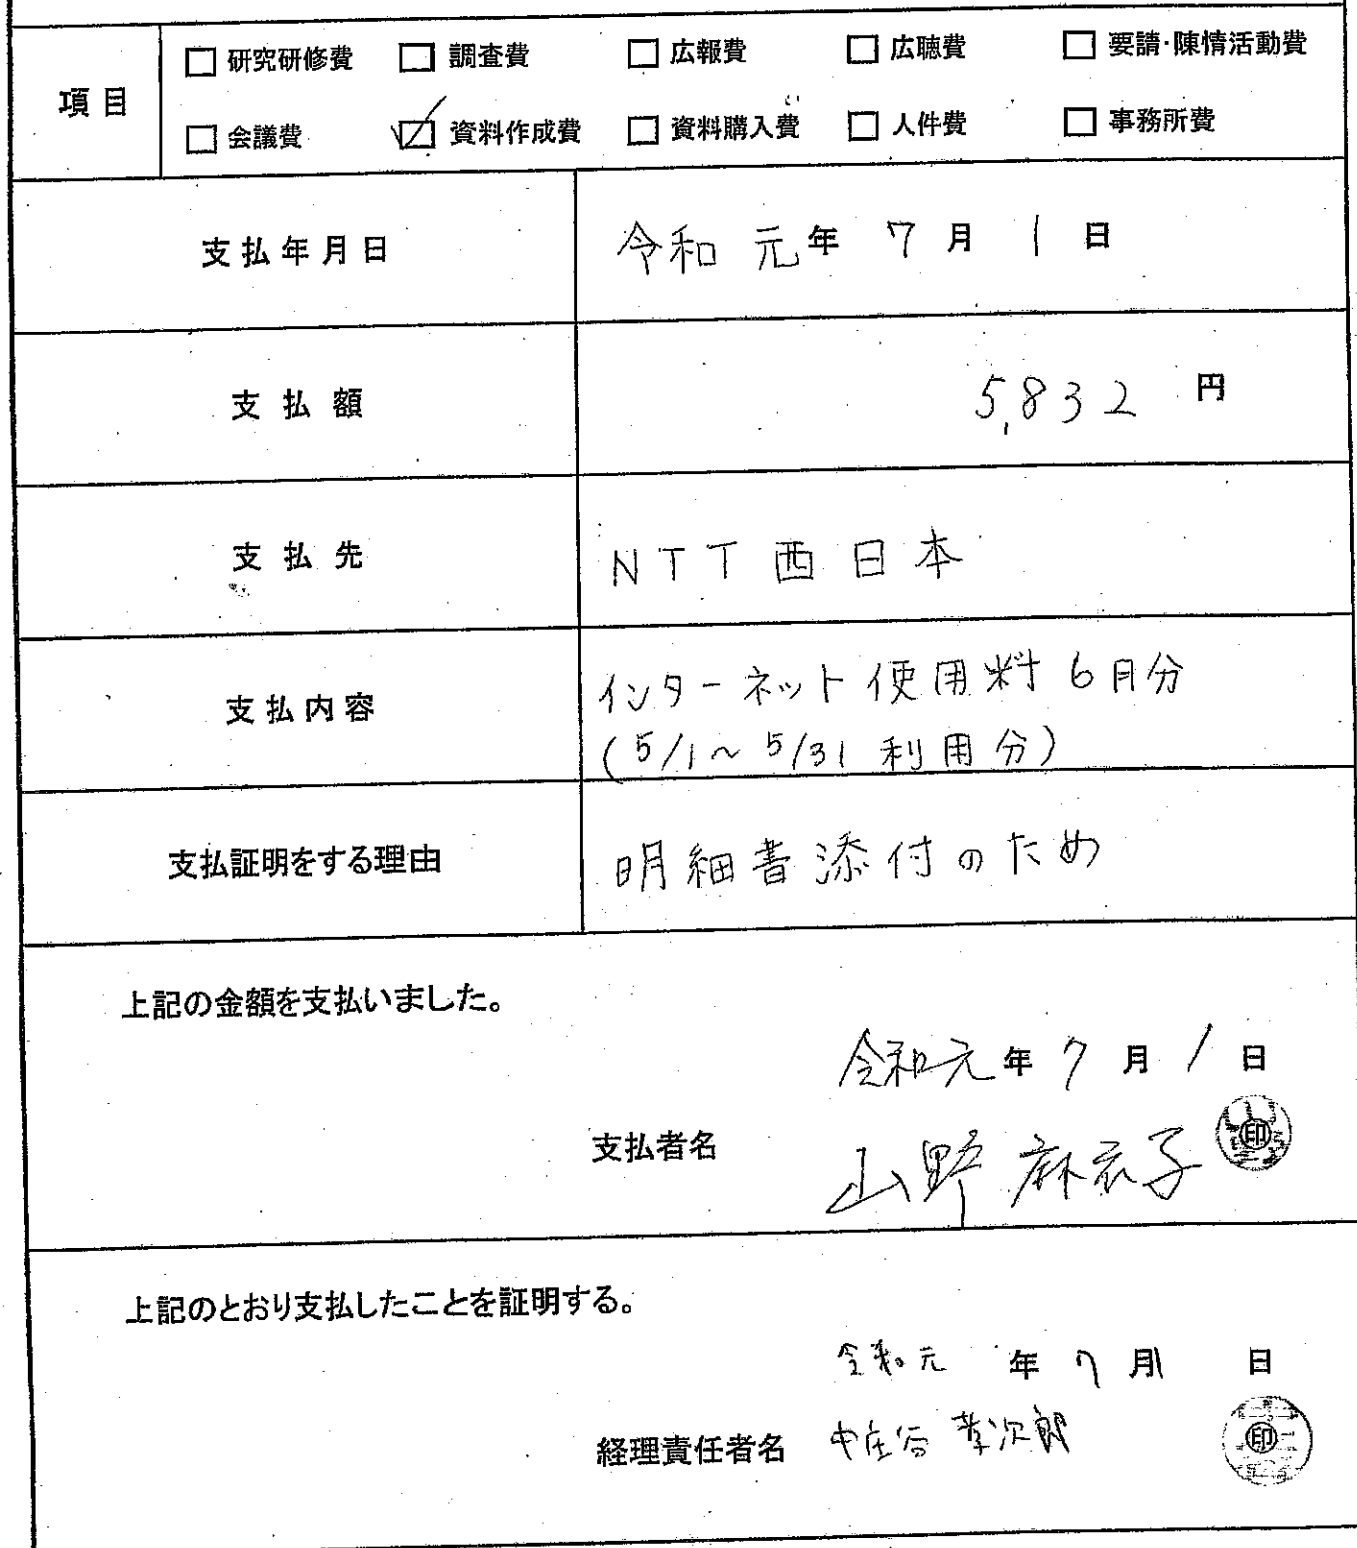 □ 研究研修費 □ 調査費 □ 広報費 □ 広聴費 □ 要請・陳情活動費
項目
□ 会議費 ☑ 資料作成費 □ 資料購入費 □ 人件費 □ 事務所費
支払年月日 令和 元年 7月 1日
支払額 5,832 円
支払先 NTT西日本
支払内容 インターネット使用料6月分
(5/1~5/31 利用分)
支払証明をする理由 明細書添付のため
上記の金額を支払いました。
令和元年 7月 1日
支払者名 山野 麻衣子 印
上記のとおり支払したことを証明する。
令和元 年 7月1 日
経理責任者名 中庄谷 孝次郎 印